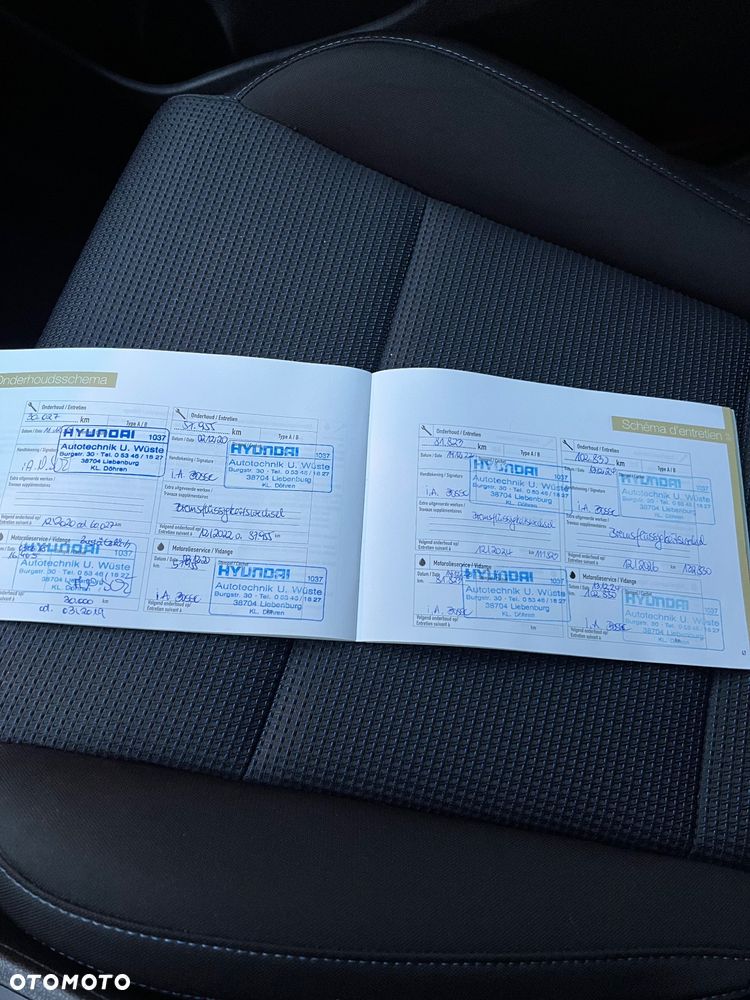 Onderhoudsschema
Onderhoud / Entretien
30.027 km Type A / B
Datum / Date
HYUNDAI 1037
Autotechnik U. Wüste
Burgstr. 30 - Tel. 0 53 46 / 18 27
38704 Liebenburg
KL. Döhren
Handtekening / Signature
Extra uitgevoerde werken /
Travaux supplémentaires
Volgend onderhoud op/
Entretien suivant à
12/2020 od. 60.027 km
Motorolieservice / Vidange
HYUNDAI 1037
Autotechnik U. Wüste
Burgstr. 30 - Tel. 0 53 46 / 18 27
38704 Liebenburg
KL. Döhren
30.000 km
od. 03.2019
Onderhoud / Entretien
57.955 km Type A / B
Datum / Date 02.12.20
HYUNDAI 1037
Autotechnik U. Wüste
Burgstr. 30 - Tel. 0 53 46 / 18 27
38704 Liebenburg
KL. Döhren
Handtekening / Signature
i.A.
Extra uitgevoerde werken /
Travaux supplémentaires
Bremsflüssigkeitswechsel
Volgend onderhoud op/
Entretien suivant à
12/2022 o. 87.955 km
Motorolieservice / Vidange
57.955
HYUNDAI 1037
Autotechnik U. Wüste
Burgstr. 30 - Tel. 0 53 46 / 18 27
38704 Liebenburg
KL. Döhren
i.A.
Volgend onderhoud op/
Entretien suivant à
km
Schéma d'entretien
Onderhoud / Entretien
81.829 km Type A / B
Datum / Date
HYUNDAI 1037
Autotechnik U. Wüste
Burgstr. 30 - Tel. 0 53 46 / 18 27
38704 Liebenburg
KL. Döhren
Handtekening / Signature
i.A.
Extra uitgevoerde werken /
Travaux supplémentaires
Bremsflüssigkeitswechsel
Volgend onderhoud op/
Entretien suivant à
12/2024 km
Motorolieservice / Vidange
Datum / Date
HYUNDAI 1037
Autotechnik U. Wüste
Burgstr. 30 - Tel. 0 53 46 / 18 27
38704 Liebenburg
KL. Döhren
i.A.
Volgend onderhoud op/
Entretien suivant à
Onderhoud / Entretien
km Type A / B
Datum / Date
HYUNDAI 1037
Autotechnik U. Wüste
Burgstr. 30 - Tel. 0 53 46 / 18 27
38704 Liebenburg
KL. Döhren
Handtekening / Signature
i.A.
Extra uitgevoerde werken /
Travaux supplémentaires
Bremsflüssigkeitswechsel
Volgend onderhoud op/
Entretien suivant à
12/2026 km
Motorolieservice / Vidange
Datum / Date 13.12.24
HYUNDAI 1037
Autotechnik U. Wüste
Burgstr. 30 - Tel. 0 53 46 / 18 27
38704 Liebenburg
KL. Döhren
i.A.
Volgend onderhoud op/
Entretien suivant à
km
OTOMOTO